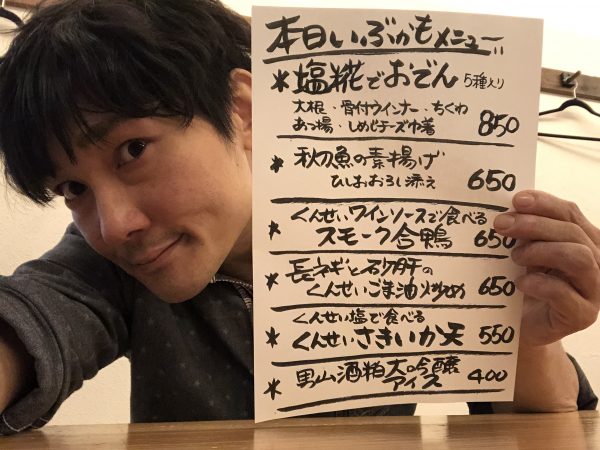 本日いぶかもメニュー
＊塩糀でおでん 5種入り
大根・骨付ウインナー・ちくわ
あつ揚・しめじチーズ巾着 850
＊秋刀魚の素揚げ
ひしおおろし添え 650
＊くんせいワインソースで食べる
スモーク合鴨 650
＊長ネギと砂肝の
くんせいごま油炒め 650
くんせい塩で食べる
＊くんせいさきいか天 550
＊男山酒粕大吟醸
アイス 400